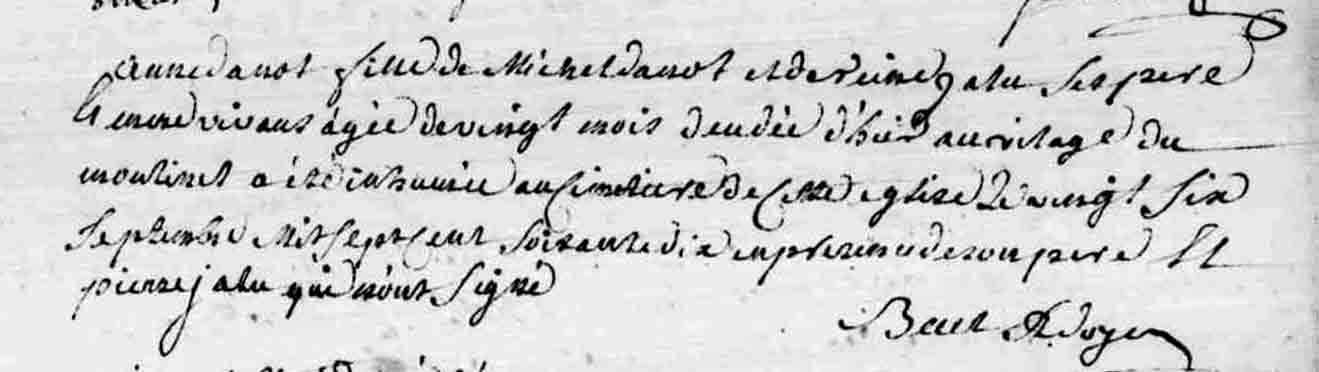 anne danot fille de Michel danot et de reine jalu ses pere
Et mere vivans agée de vingt mois decedée d'hier au vilage du
moulinet a été inhumée au Cimetiere de Cette eglise Le vingt six
septembre Mil sept cent soixante dix en presence de son pere Et
pierre jalu qui n'ont signé